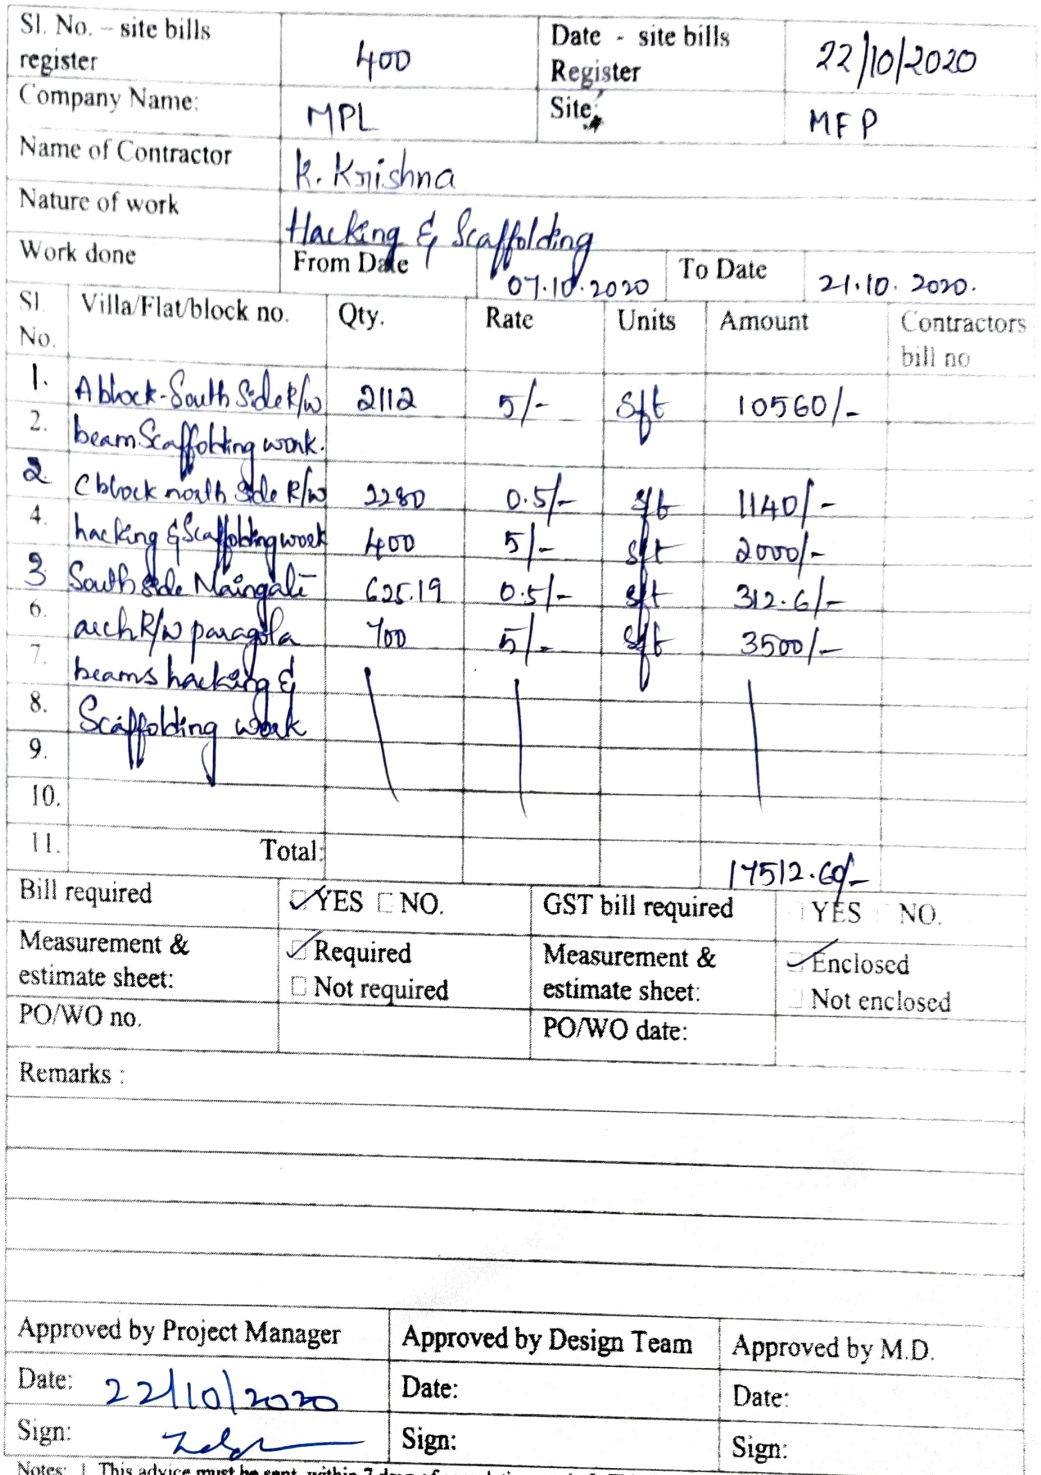 Sl. No. – site bills register 400 Date - site bills Register 22/10/2020
Company Name: MPL Site: MFP
Name of Contractor K. Krishna
Nature of work Hacking & Scaffolding
Work done From Date 07.10.2020 To Date 21.10.2020.
Sl. No. Villa/Flat/block no. Qty. Rate Units Amount Contractors bill no
1. A block-South Side R/w 2112 5/- Sft 10560/-
2. beam Scaffolding work.
2 C block north side R/w 2280 0.5/- sft 1140/-
4. hacking & Scaffolding work 400 5/- sft 2000/-
3 South side Maingate 625.19 0.5/- sft 312.6/-
6. arch R/w paragola 700 5/- sft 3500/-
7. beams hacking &
8. Scaffolding work
9.
10.
11. Total: 17512.60/-
Bill required YES NO. GST bill required YES NO.
Measurement & estimate sheet: Required Not required Measurement & estimate sheet: Enclosed Not enclosed
PO/WO no. PO/WO date:
Remarks :
Approved by Project Manager Approved by Design Team Approved by M.D.
Date: 22/10/2020 Date: Date:
Sign: Sign: Sign:
Notes: 1. This advice must be sent within 7 days of